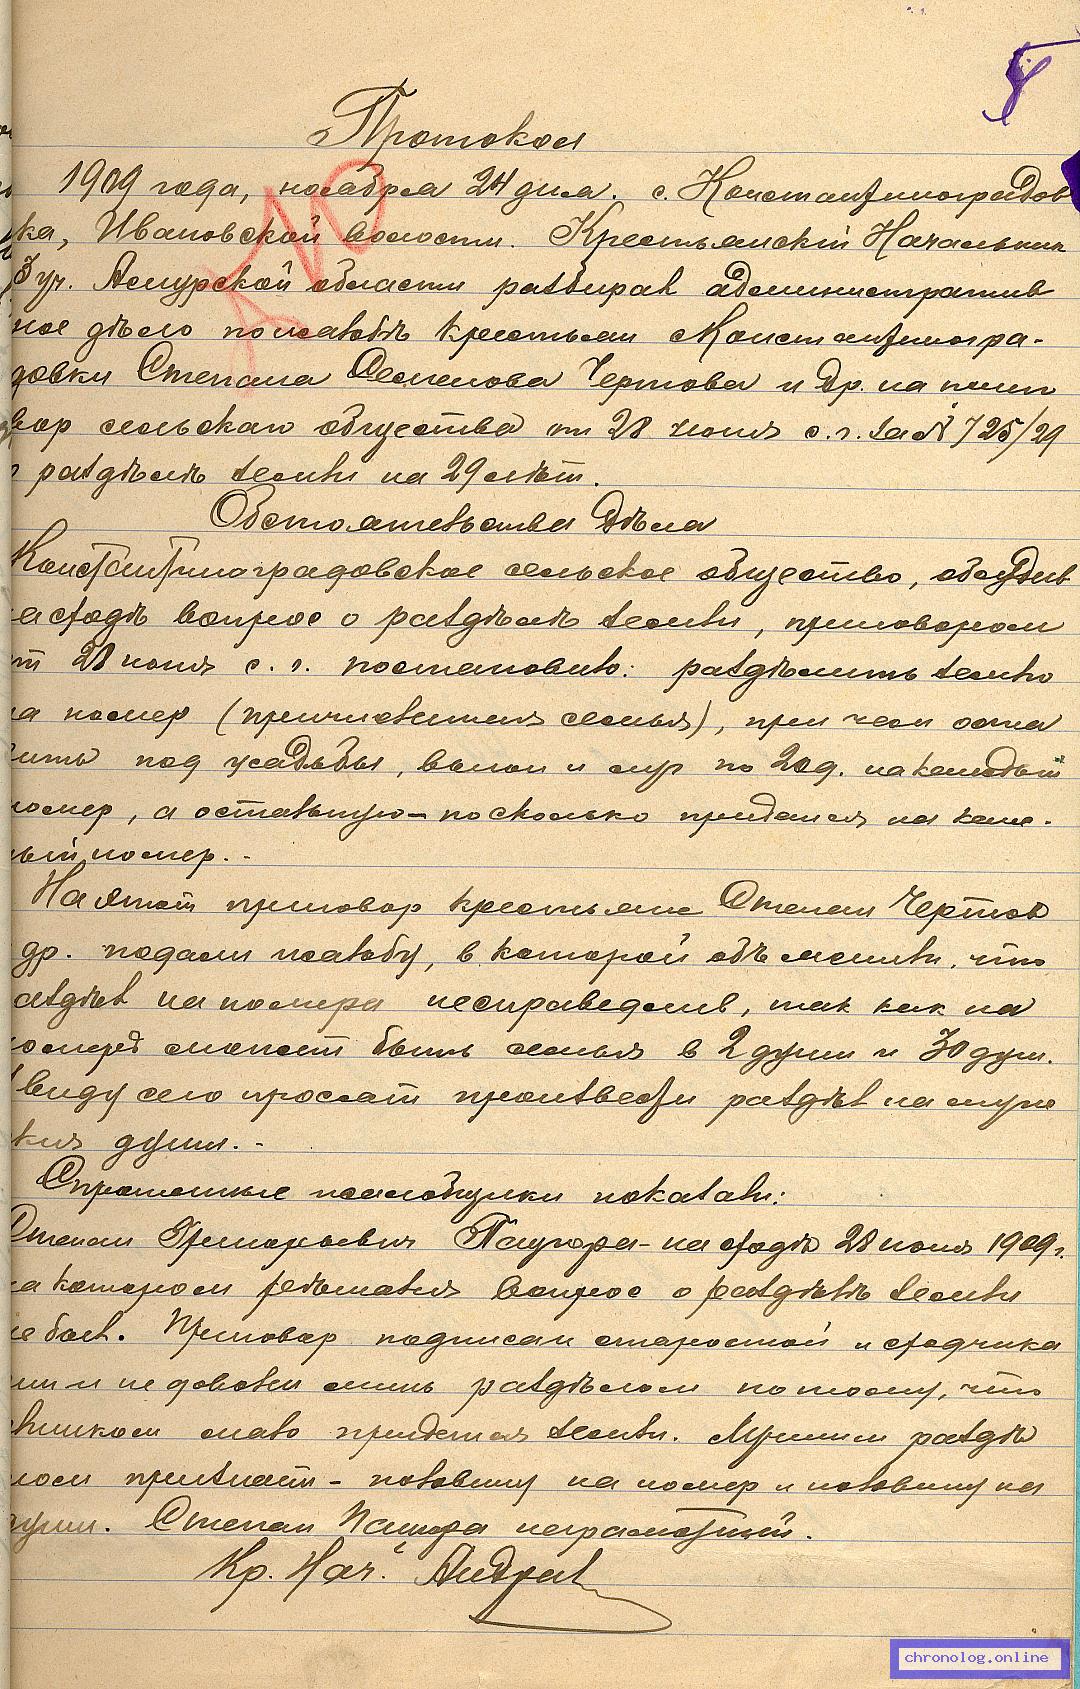 8
Протокол
1909 года, ноября 24 дня. с. Константиноградов
ка, Ивановской волости. Крестьянскій Начальник
3 уч. Амурской области разбирав административ
ное дѣло по жалобѣ крестьян Константиногра-
довки Степана Семенова Чертова и др. на приго
вор сельскаго общества от 28 июня с. г. за № 725/29
о раздѣлѣ земли на 29 лѣт.
Обстоятельства дѣла
Константиноградовское сельское общество, обсудив
на сходѣ вопрос о раздѣлѣ земли, приговором
от 28 июня с. г. постановило: раздѣлить землю
на номер (причисленная семья), при чем оста
вить под усадьбы, выгон и луг по 20 д. на каждый
номер, а остальную – по сколько придется на каж-
дый номер. -
На этот приговор крестьяне Степан Чертов
др. подали жалобу, в которой объяснили, что
раздѣл на номера несправедлив, так как на
номерѣ может быть семья в 2 души и 30 душ.
Ввиду сего просят произвести раздѣл на муже
ския души. -
Спрошенные жалобщики показали:
Степан Григорьевич Пацюра – на сходѣ 28 июня 1909 г.
на котором рѣшался вопрос о раздѣлѣ земли
не был. Приговор подписан старостой и сходчика
ми и не доволен лишь раздѣлом потому, что
слишком мало придется земли. Лучшим раздѣ
лом признает – половину на номер и половину на
души. Степан Пацюра неграмотный.
Кр. Нач.
chronolog.online